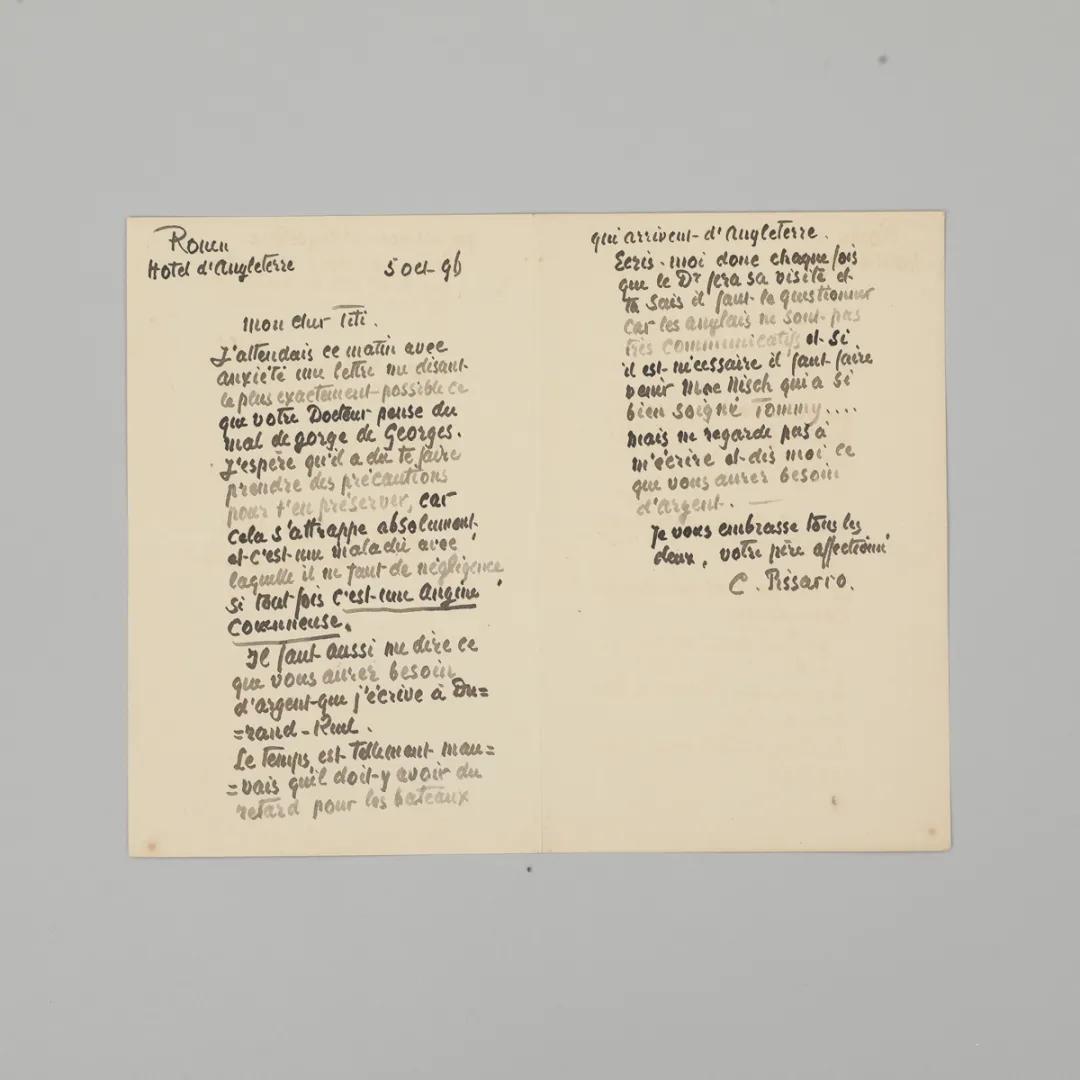 Rouen
Hotel d'Angleterre 5 oct 96
mon cher Titi.
J'attendais ce matin avec
anxiété une lettre me disant
le plus exactement possible ce
que votre Docteur pense du
mal de gorge de Georges.
J'espère qu'il a du te faire
prendre des précautions
pour t'en préserver, car
cela s'attrappe absolument
et c'est une maladie avec
laquelle il ne faut de négligence
si tout fois c'est une Angine
Couenneuse.
Il faut aussi me dire ce
que vous aurez besoin
d'argent que j'écrive à Du=
=rand-Ruel.
Le Temps est Tellement mau=
=vais qu'il doit y avoir du
retard pour les bateaux
qui arrivent d'Angleterre.
Ecris-moi donc chaque fois
que le Dr fera sa visite et
tu sais il faut le questionner
car les anglais ne sont pas
très communicatifs et si
il est nécessaire il faut faire
venir Mme Nisch qui a si
bien soigné Tommy....
mais ne regarde pas à
m'écrire et dis moi ce
que vous aurez besoin
d'argent. —
Je vous embrasse tous les
deux, votre père affectionné
C. Pissarro.